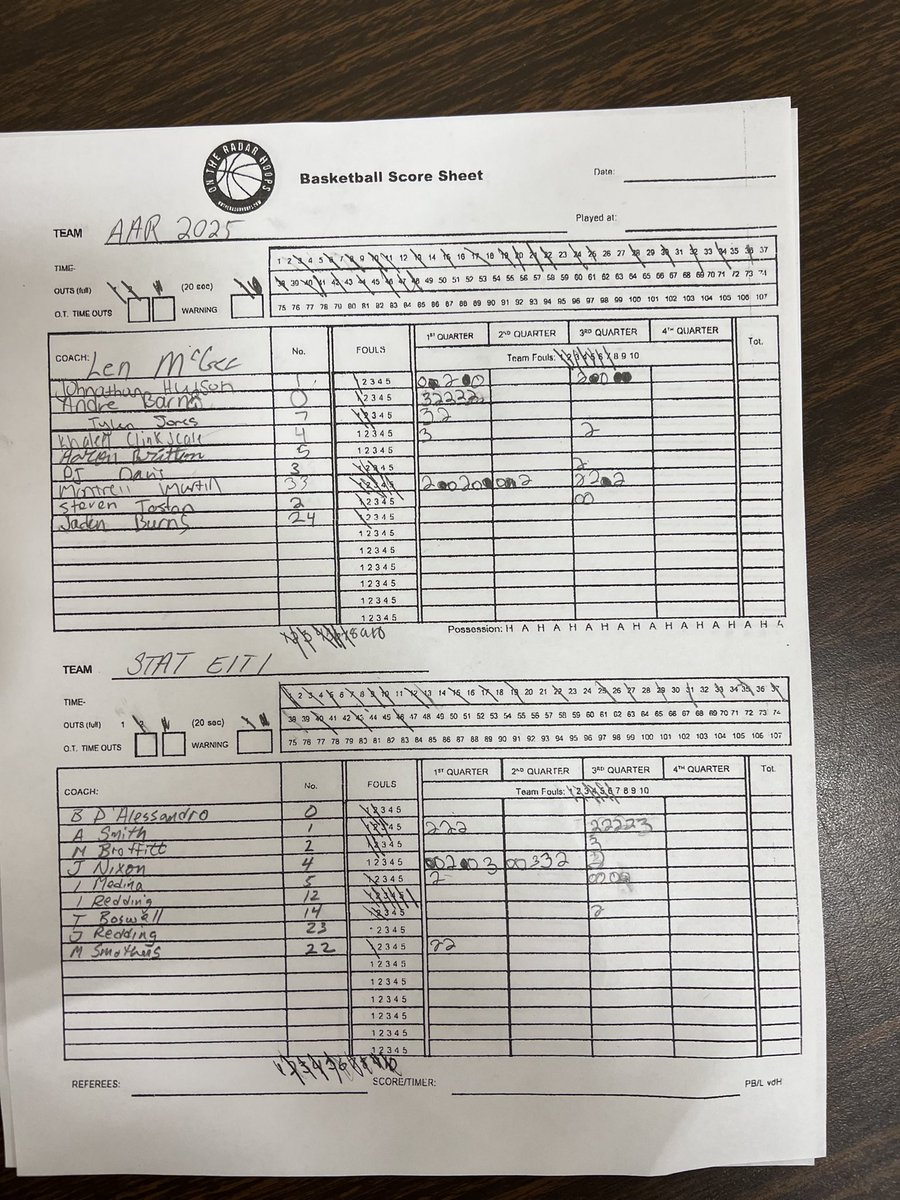 ON THE RADAR HOOPS
Basketball Score Sheet
Date:
Played at:
TEAM AAR 2025
TIME-
OUTS (full) (20 sec)
O.T. TIME OUTS WARNING
1 2 3 4 5 6 7 8 9 10 11 12 13 14 15 16 17 18 19 20 21 22 23 24 25 26 27 28 29 30 31 32 33 34 35 36 37
38 39 40 41 42 43 44 45 46 47 48 49 50 51 52 53 54 55 56 57 58 59 60 61 62 63 64 65 66 67 68 69 70 71 72 73 74
75 76 77 78 79 80 81 82 83 84 85 86 87 88 89 90 91 92 93 94 95 96 97 98 99 100 101 102 103 104 105 106 107
COACH: Len McGee No. FOULS 1ST QUARTER 2ND QUARTER 3RD QUARTER 4TH QUARTER Tot.
Team Fouls: 1 2 3 4 5 6 7 8 9 10
Johnathan 1 1 2 3 4 5
Andre 0 1 2 3 4 5 32222
Jones 7 1 2 3 4 5 32
Khalen Clinkscale 4 1 2 3 4 5 3 2
Britton 5 1 2 3 4 5
PJ Davis 3 1 2 3 4 5 2
Montrell Martin 33 1 2 3 4 5
Steven 2 1 2 3 4 5 00
Jaden Burns 24 1 2 3 4 5
1 2 3 4 5
1 2 3 4 5
1 2 3 4 5
1 2 3 4 5
1 2 3 4 5
1 2 3 4 5
Possession: H A H A H A H A H A H A H A H A H A H
TEAM STAT EITI
TIME-
OUTS (full) 1 (20 sec)
O.T. TIME OUTS WARNING
1 2 3 4 5 6 7 8 9 10 11 12 13 14 15 16 17 18 19 20 21 22 23 24 25 26 27 28 29 30 31 32 33 34 35 36 37
38 39 40 41 42 43 44 45 46 47 48 49 50 51 52 53 54 55 56 57 58 59 60 61 62 63 64 65 66 67 68 69 70 71 72 73 74
75 76 77 78 79 80 81 82 83 84 85 86 87 88 89 90 91 92 93 94 95 96 97 98 99 100 101 102 103 104 105 106 107
COACH: No. FOULS 1ST QUARTER 2ND QUARTER 3RD QUARTER 4TH QUARTER Tot.
Team Fouls: 1 2 3 4 5 6 7 8 9 10
B D'Alessandro 0 1 2 3 4 5
A Smith 1 1 2 3 4 5 222 22223
M Broffitt 2 1 2 3 4 5 3
J Nixon 4 1 2 3 4 5 00332
I Medina 5 1 2 3 4 5 2
I Redding 12 1 2 3 4 5
T Boswell 14 1 2 3 4 5 2
J Redding 23 2 3 4 5
M Smothers 22 1 2 3 4 5 22
1 2 3 4 5
1 2 3 4 5
1 2 3 4 5
1 2 3 4 5
1 2 3 4 5
1 2 3 4 5
REFEREES: SCORE/TIMER: PB/L vdH